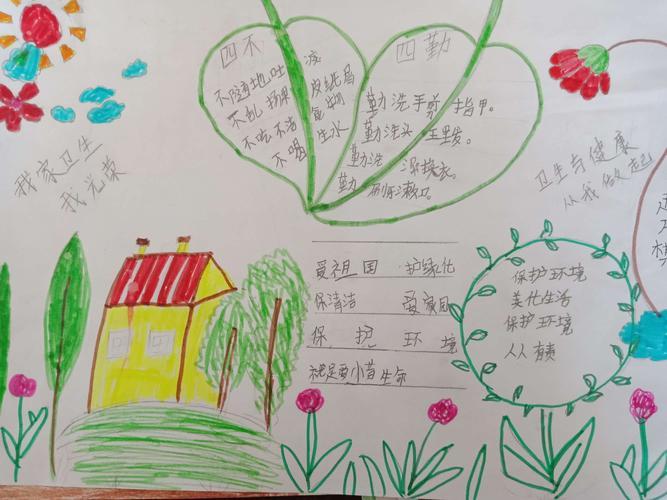 四不
不随地吐痰
不乱扔果皮纸屑
不吃不洁食物
不喝生水
四勤
勤洗手剪指甲。
勤洗头理发。
勤洗澡换衣。
勤刷牙漱口。
我家卫生
我光荣
卫生与健康
从我做起
爱祖国 护绿化
保清洁 爱家园
保护环境
就是要小昔生命
保护环境
美化生活
保护环境
人人有责